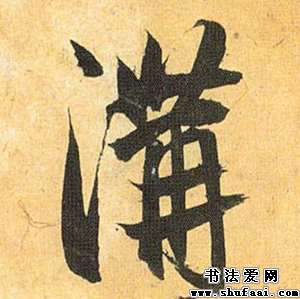 溝
书法爱网
www.shufaai.com